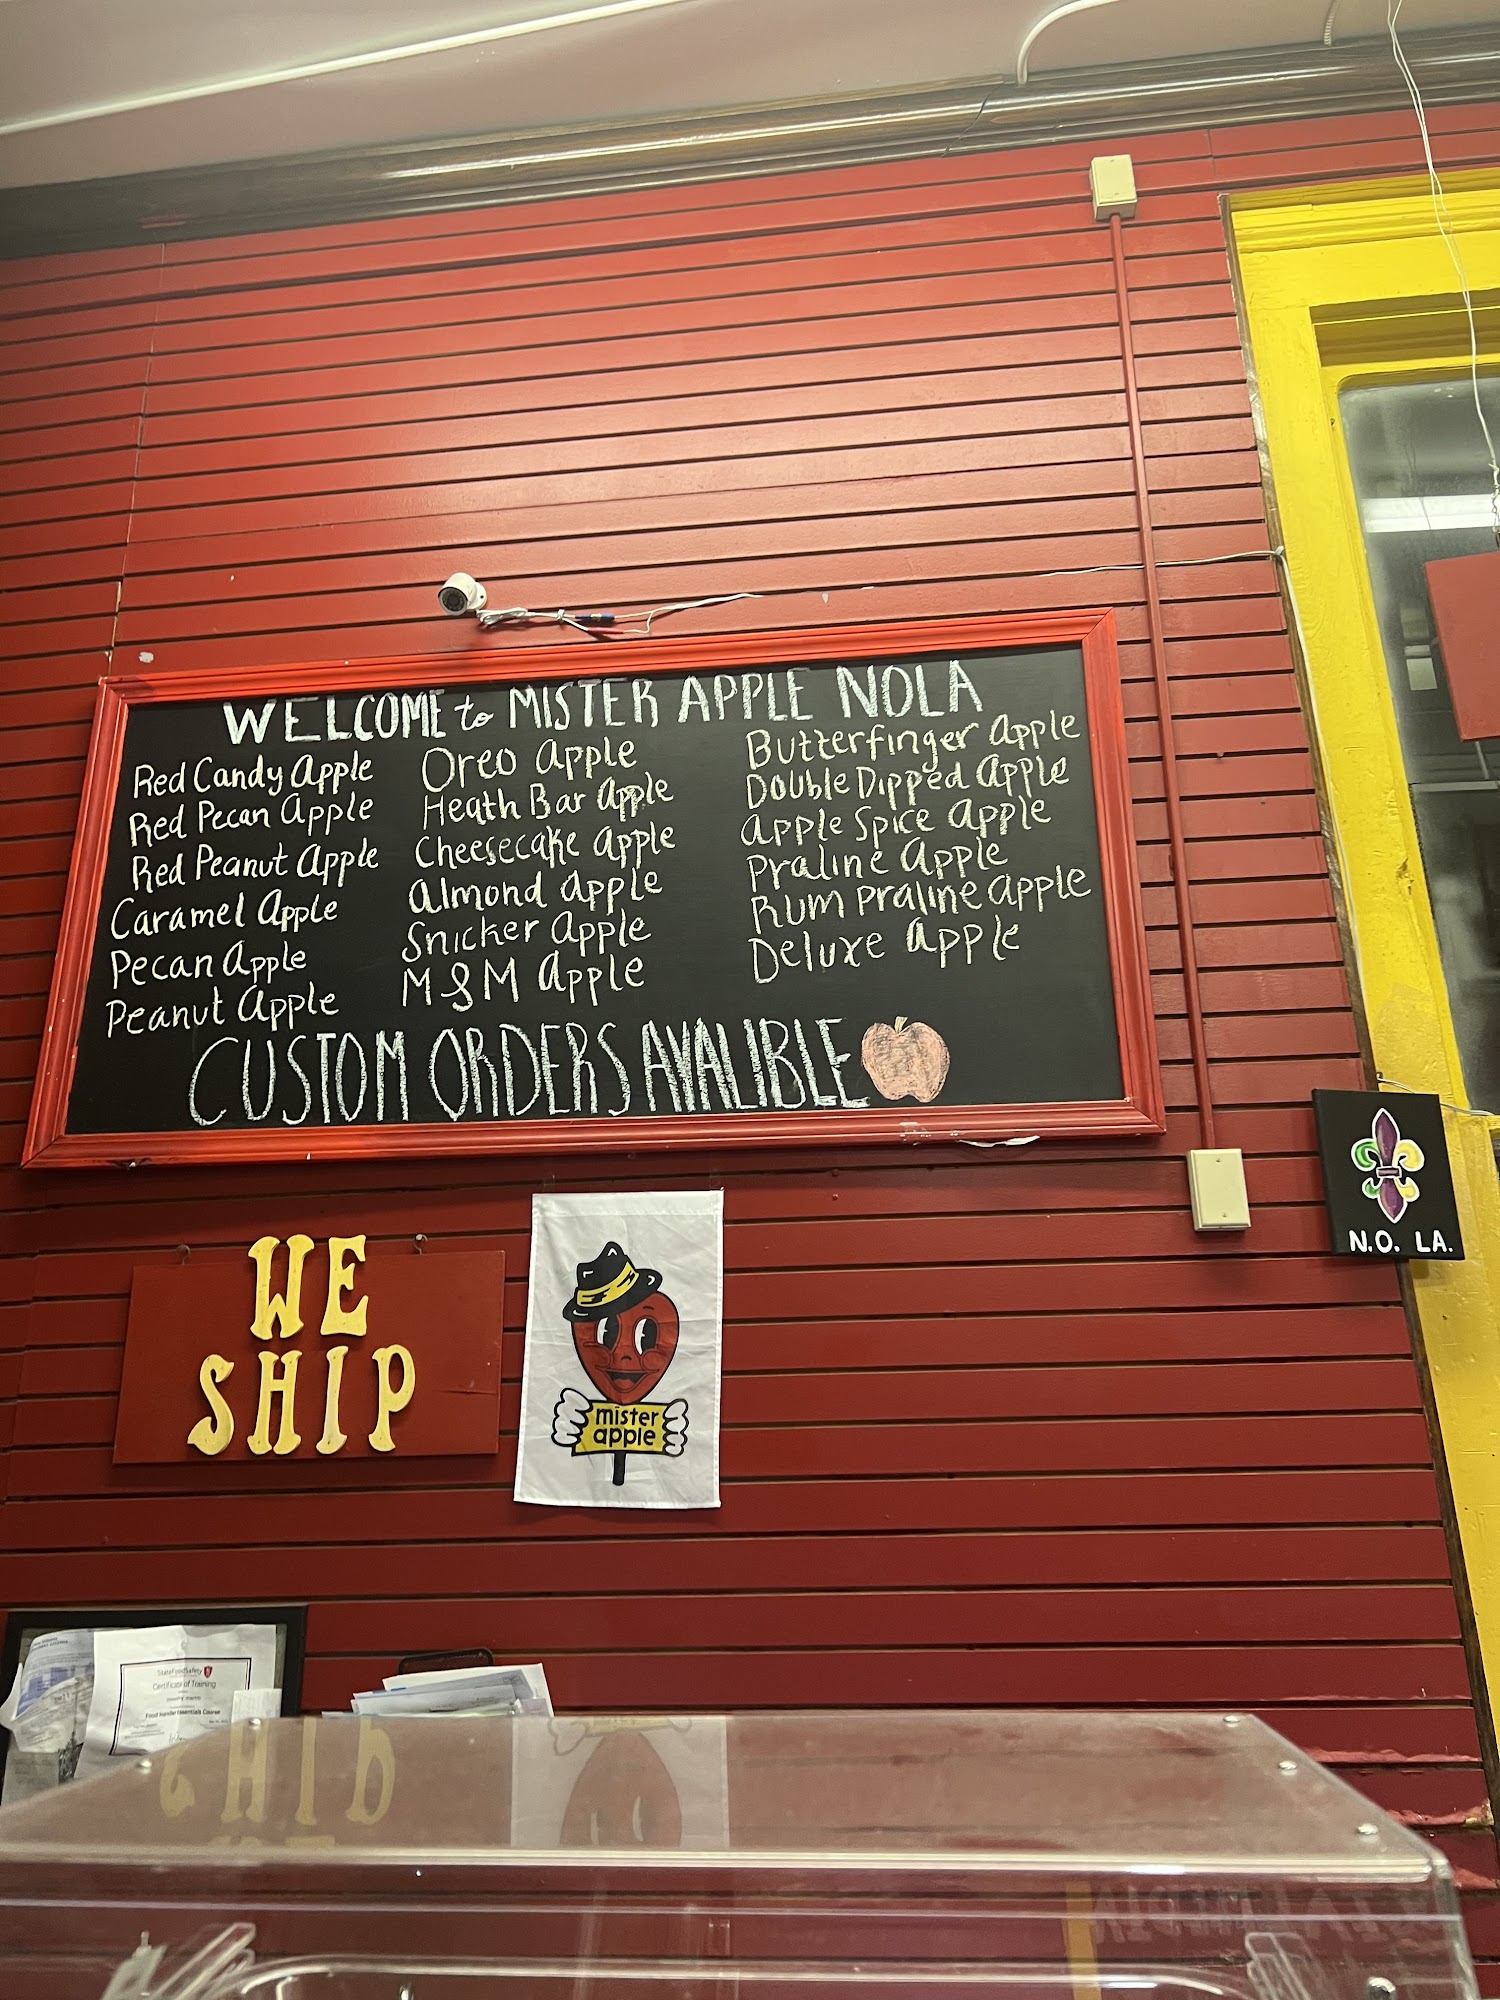 WELCOME to MISTER APPLE NOLA
Red Candy Apple
Red Pecan Apple
Red Peanut Apple
Caramel Apple
Pecan Apple
Peanut Apple
Oreo Apple
Heath Bar Apple
Cheesecake Apple
Almond Apple
Snicker Apple
M&M Apple
Butterfinger Apple
Double Dipped Apple
Apple Spice Apple
Praline Apple
Rum Praline Apple
Deluxe Apple
CUSTOM ORDERS AVALIBLE
WE
SHIP
mister
apple
N.O. LA.
StateFoodSafety
Certificate of Training
Food Handler Essentials Course